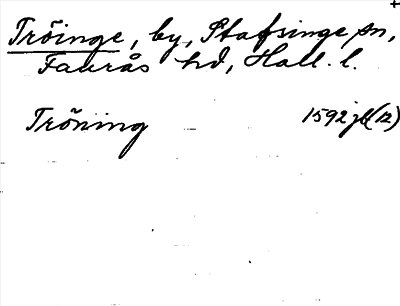 Tröinge, by, Stafsinge sn,
Faurås hd, Hall. l.
Tröning 1592 jb (12)